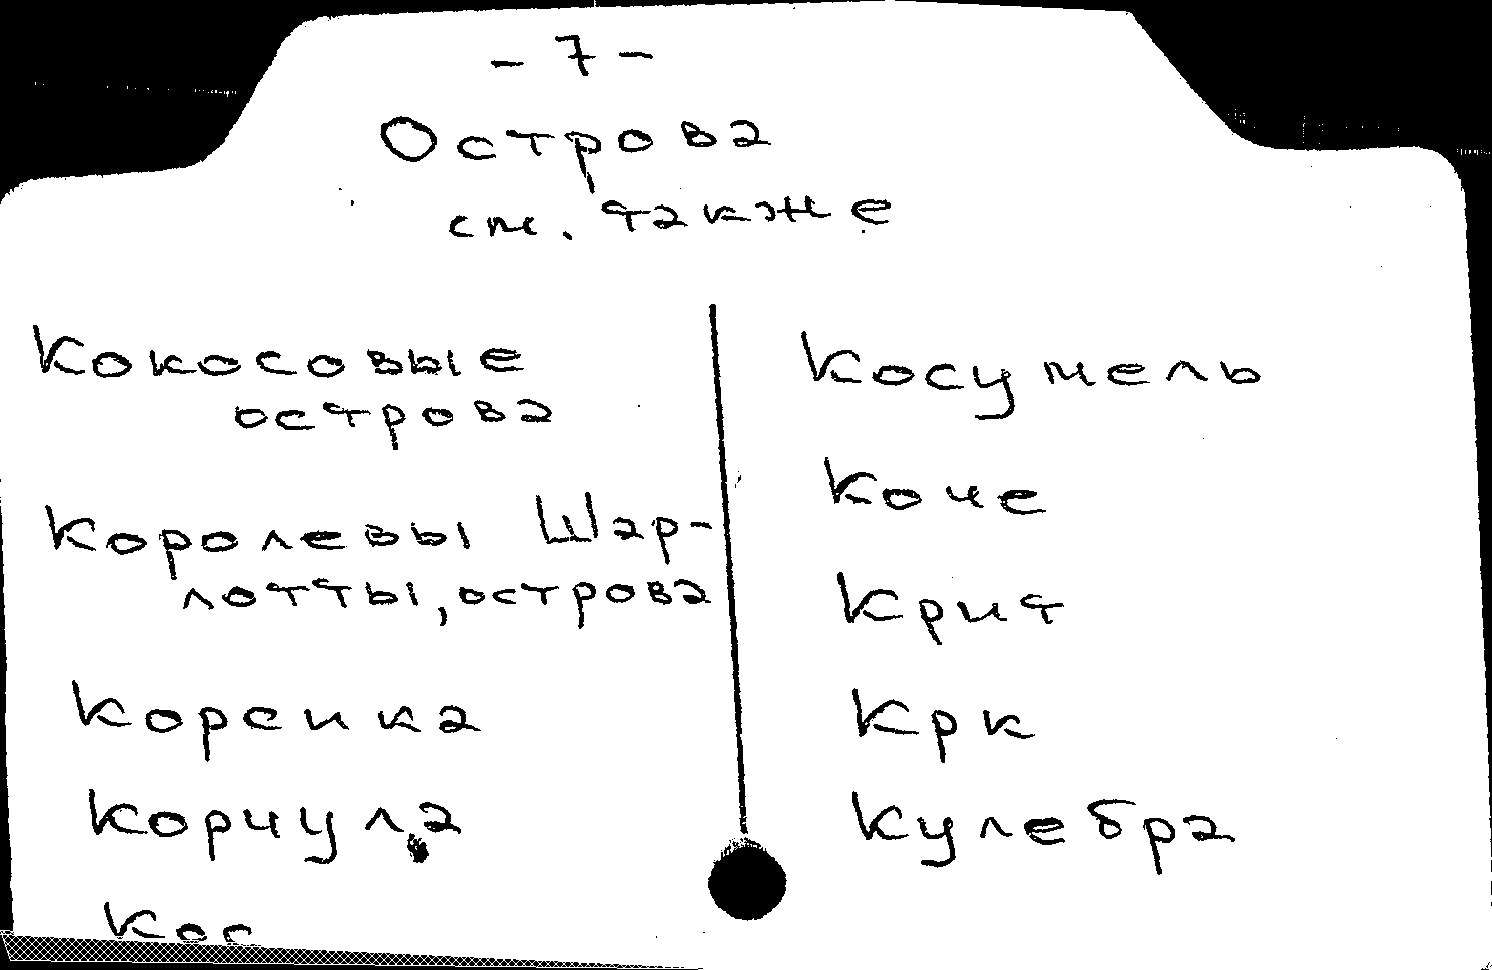 - 7 -
Острова
см. также
Кокосовые
острова
Королевы Шар-
лотты, острова
Корсика
Корчула
Кос
Косумель
Коче
Крит
Крк
Кулебра